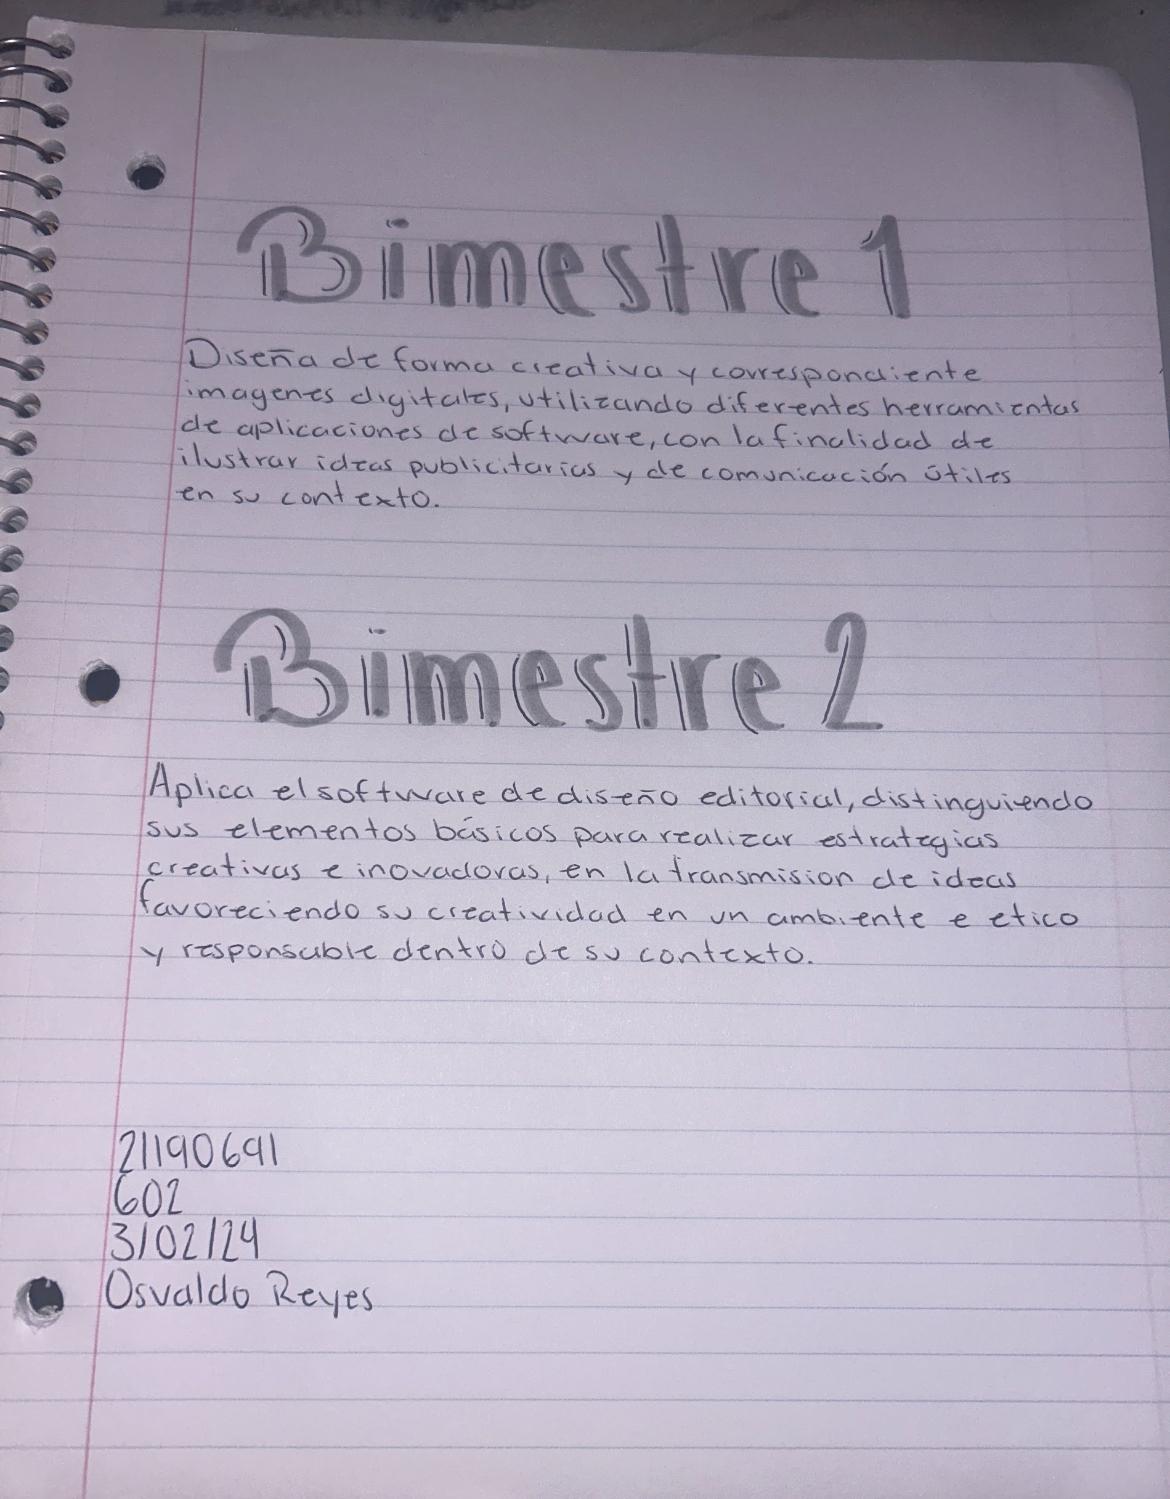 Bimestre 1
Diseña de forma creativa y correspondiente
imagenes digitales, utilizando diferentes herramientas
de aplicaciones de software, con la finalidad de
ilustrar ideas publicitarias y de comunicación útiles
en su contexto.
Bimestre 2
Aplica el software de diseño editorial, distinguiendo
sus elementos básicos para realizar estrategias
creativas e inovadoras, en la transmision de ideas
favoreciendo su creatividad en un ambiente e etico
y responsable dentro de su contexto.
21190691
602
3/02/24
Osvaldo Reyes